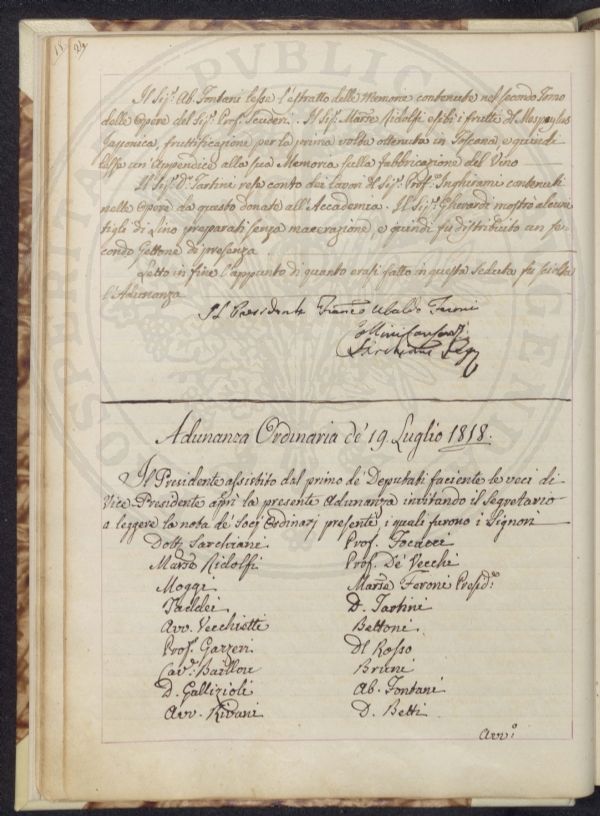 18. 24
Il Sigr. Ab. Fontani lesse l'estratto delle Memorie contenute nel secondo Tomo
delle Opere del Sigr. Prof. Scuderi. Il Sigr. Marse Ridolfi esibì i frutti del Mespylus
Japponica, fruttificazione per la prima volta ottenuta in Toscana, e quindi
lesse un'Appendice alla sua Memoria sulla fabbricazione del Vino
Il Sigr. Dr. Tartini rese conto dei lavori del Sigr. Profr. Inghirami contenuti
nelle Opere da questo donate all'Accademia. Il Sigr. Gherardi mostrò alcuni
tigli di Lino preparati senza macerazione, e quindi fu distribuito un se-
condo Gettone di presenza
Letto in fine l'appunto di quanto erasi fatto in questa Seduta fu sciolta
l'Adunanza
Il Presidente Franco Ubaldo Feroni
Sarchiani Segr
Adunanza Ordinaria de' 19. Luglio 1818.
Il Presidente assistito dal primo de' Deputati faciente le veci di
Vice-Presidente aprì la presente Adunanza invitando il Segretario
a leggere la nota de' Socj Ordinarj presente, i quali furono i Signori
Dott. Sarchiani
Marse Ridolfi
Moggi
Taddei
Avv. Vecchietti
Prof. Gazzeri
Cavr. Baillou
D. Gallizioli
Avv. Rivani
Prof. Focacci
Prof. De' Vecchi
Marse Feroni Presid.
D. Tartini
Bettoni
Del Rosso
Bruni
Ab. Fontani
D. Betti
Avv.